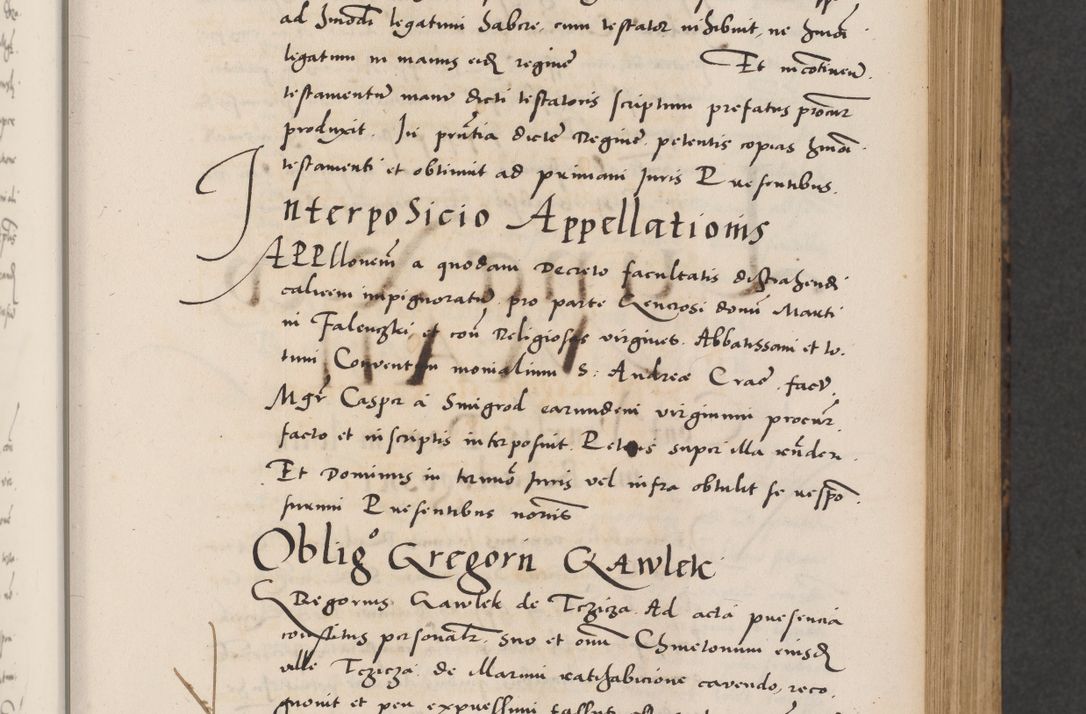 ad hmõi legatum habere, cum testator inhibuit, ne hmõi
legatum in manus eidẽ regine Et incontinen̄.
testamentũ manu dicti testatoris scriptum prefatus procur̄
produxit. In pñtia dicte Regine petentis copias hmõi
testamenti et obtinuit ad primam Juris Presentibus.
Interposicio Appellationis
APPllonem̃ a quodam Decreto facultatis distrahendi
calicem inpignoratũ pro parte Generosi domi Marti
ni Falenczki et con̄ Religiosas virgines. Abbatissam et to.
tum Conventum monialium S. Andree Crac. factũ.
Mgr̃ Casper a Smigrod earundem virginum procur̄.
facto et in scriptis interposuit. Petens super illa rñderi.
Et Dominus in termõ Juris vel infra obtulit se respõ.
surum Presentibus notariis
Oblig° Gregorii Gawlek
GRegorius Gawlek de Tczicza Ad acta presencia
constitus personalr̃. suo et oñm Chmetonum eiusdẽ
ville Tcziczá de illarum ratihabicione cavendo, reco.
gnovit et per expressum